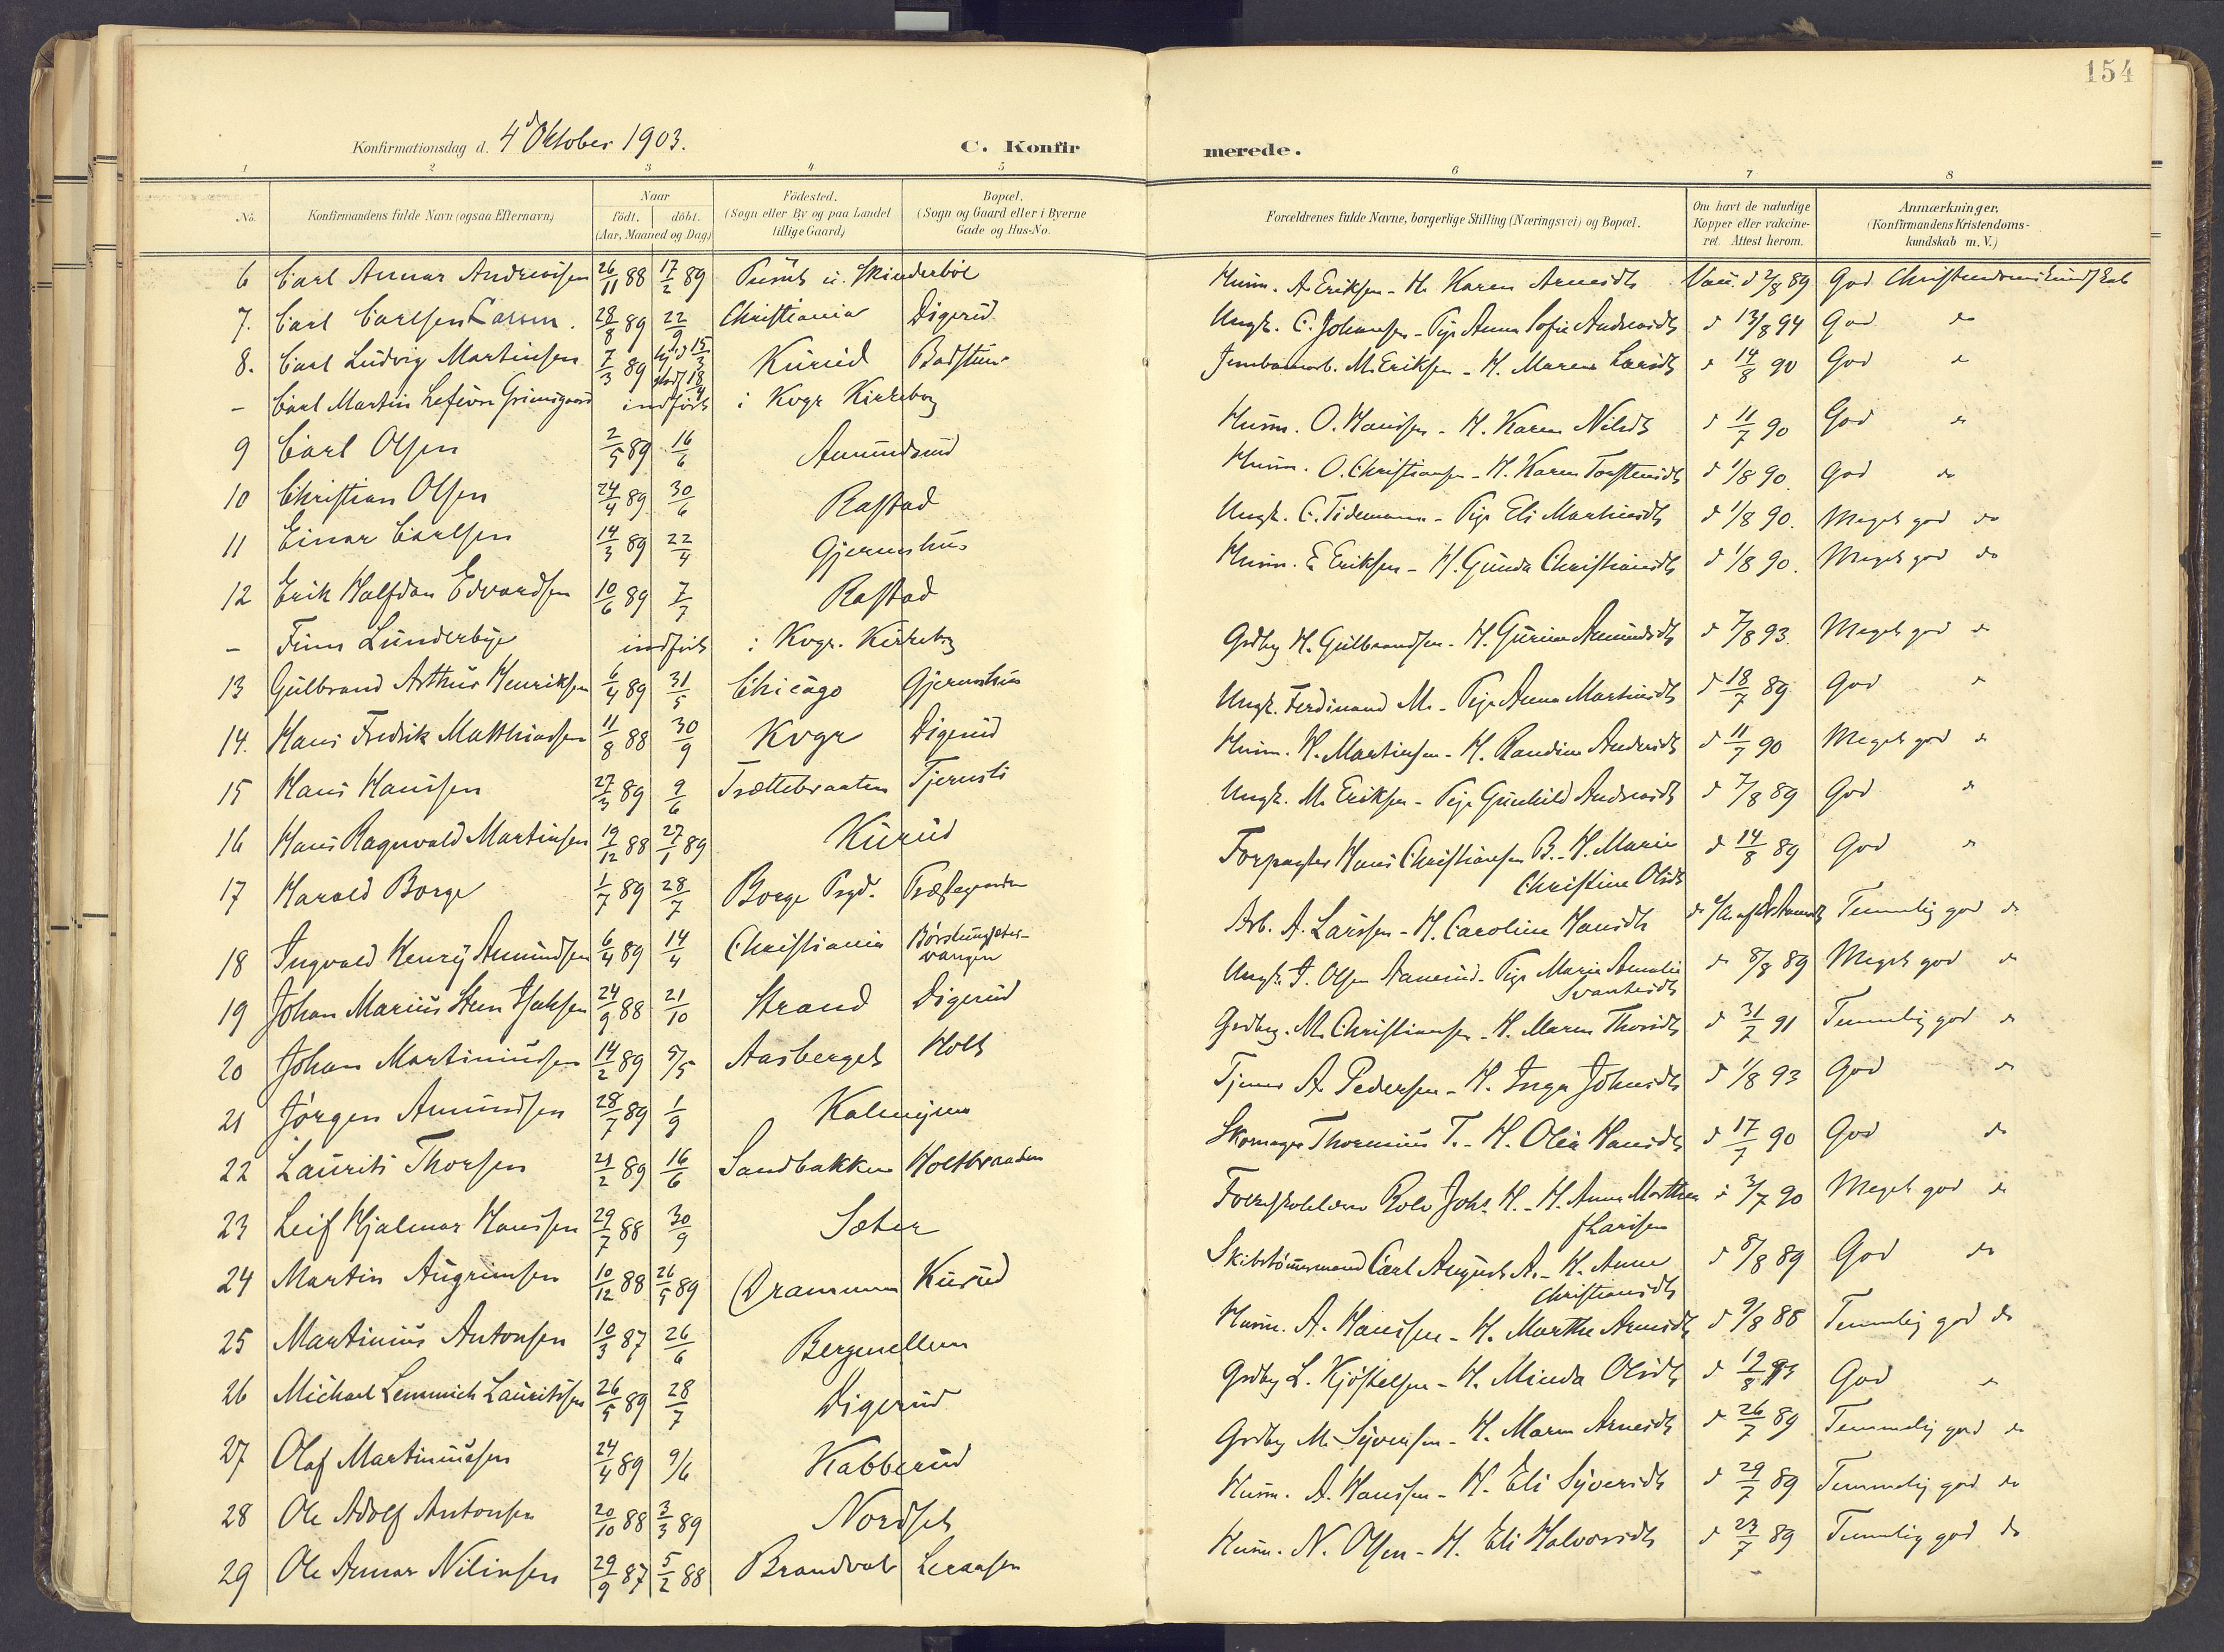 154
Konfirmationsdag d. 4d Oktober 1903.
C. Konfirmerede.
1 2 3 4 5 6 7 8
No. Konfirmandens fulde Navn (ogsaa Efternavn) Naar födt. döbt. (Aar, Maaned og Dag) Födested. (Sogn eller By og paa Landet tillige Gaard) Bopæl. (Sogn og Gaard eller i Byerne Gade og Hus-No. Forældrenes fulde Navne, borgerlige Stilling (Næringsvei) og Bopæl. Om havt de naturlige Kopper eller vakcineret. Attest herom. Anmærkninger. (Konfirmandens Kristendomskundskab m. V.)
6 Carl Annar Andreasen 26/11 88 17/2 89 Skinderböl
7. Carl Carlsen Larsen. 28/8 89 22/9 Christiania Digerud
8. Carl Ludvig Martinsen 7/3 89 Kurud Badstuen
- Carl Martin Grimsgaard indfört i Kvgr Kirkebog
9 Carl Olsen 2/5 89 16/6 Amundsrud
10 Christian Olsen 24/4 89 30/6 Rastad
11 Einar Carlsen 14/3 89 22/4 Gjernshus
12 Erik Halfdan Edvardsen 10/6 89 7/7 Rastad
- Finn Lunderbye indfört i Kvgr. Kirkebog
13 Gulbrand Arthur Henriksen 6/4 89 31/5 Chicago Gjernshus
14. Hans Fredrik Matthiasen 11/8 88 30/9 Kvgr Digerud
15 Hans Hansen 27/3 89 9/6 Trættebraaten Tjernsli
16 Hans Ragnvald Martinsen 19/12 88 27/1 89 Kurud
17 Harald Borge 1/7 89 28/7 Borge Prgd. Præstegaarden
18 Ingvald Henry Amundsen 6/4 89 14/4 Christiania
19 Johan Marius Isaksen 24/9 88 21/10 Strand Digerud
20 Johan Martiniussen 14/2 89 5/5 Aasberget Holt
21 Jörgen Amundsen 28/7 89 1/9 Kalmyren
22 Laurits Thorsen 21/2 89 16/6 Sandbakken Holtbraaden
23 Leif Hjalmar Hansen 29/7 88 30/9 Sæter
24 Martin Augrimsen 10/12 88 26/5 89 Drammen Kurud
25 Martinius Antonsen 10/3 87 26/6 Bergmellem
26 Michael Lemmich Lauritsen 26/5 89 28/7 Digerud
27 Olaf Martiniussen 24/4 89 9/6 Kabberud
28 Ole Adolf Antonsen 20/10 88 3/3 89 Nordset
29 Ole Armar Nilsen 29/9 87 5/2 88 Brandval Leraasen
Husm. A. Eriksen - H. Karen Arnesdt Vacc. d 2/8 89 God Christendomskundskab
Ungk. C. Johansen - Pige Anna Sofie Andreasdt d 13/8 94 God do
M. Eriksen - H. Maren Larsdt d 14/8 90 God do
Husm. O. Hansen - H. Karen Nilsdt d 11/7 90 God do
Husm. O. Christiansen - H. Karen Torstensdt d 1/8 90. God do
Ungk. C. Tidemann - Pige Eli Martinsdt d 1/8 90. Meget god do
Husm. E. Eriksen - H. Gunda Christiansdt d 1/8 90. Meget god do
Grdbrg H. Gulbrandsen - H. Gurine Amundsdt d 7/8 93. Meget god do
Ungk. Ferdinand M. - Pige Anna Martinsdt d 18/7 89 God do
Husm. H. Martinsen - H. Randine Andersdt d 11/7 90 Meget god do
Ungk. M. Eriksen - Pige Gunhild Andreasdt d 7/8 89 God do
Forpagter Hans Christiansen B. - H. Marie Christine Olsdt d 14/8 89 God do
Arb. A. Larsen - H. Caroline Hansdt Temmelig god do
Ungk. J. Olsen - Pige Marie Amalie d 8/8 89 Meget god do
Grdbrg. M. Christiansen - H. Maren Thorsdt d 31/7 91 Temmelig god do
Tjener A. Pedersen - H. Inga Johnsdt d 1/8 93 God do
Skomager Thormius T. - H. Olea Hansdt d 17/7 90 God do
Rolv Johs. H. - H. Anna Marthea f Larsen d 3/7 90 Meget god do
Skibstömmermand Carl August A. - H. Anne Christiansdt d 8/8 89 God do
Husm. A. Hansen - H. Marthe Arnesdt d 9/8 88 Temmelig god do
Grdbrg L. Kjöstelsen - H. Minda Olsdt d 12/8 93 God do
Grdbrg M. Syversen - H. Maren Arnesdt d 26/7 89 Temmelig god do
Husm. A. Hansen - H. Eli Syversdt d 29/7 89 Temmelig god do
Husm. N. Olsen - H. Eli Halvorsdt d 23/7 89 Temmelig god do